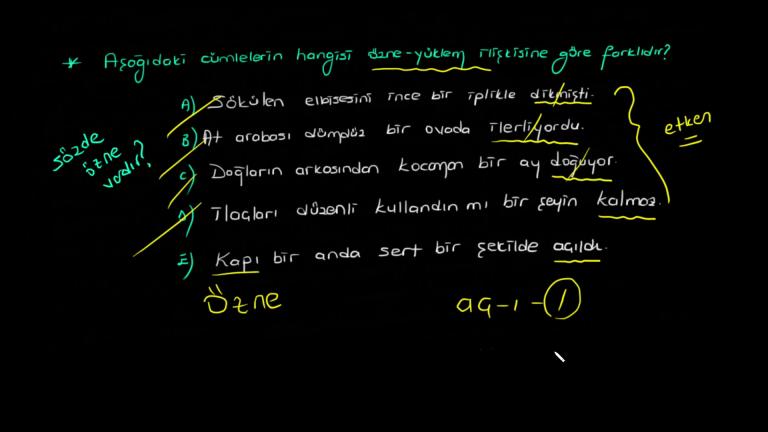 * Aşağıdaki cümlelerin hangisi özne-yüklem ilişkisine göre farklıdır?
A) Sökülen elbisesini ince bir iplikle dikmişti.
B) At arabası dümdüz bir ovada ilerliyordu.
C) Dağların arkasından kocaman bir ay doğuyor.
D) İlaçları düzenli kullandın mı bir şeyin kalmaz.
E) Kapı bir anda sert bir şekilde açıldı.
sözde
özne
vardır?
etken
Özne
aç-ı-l